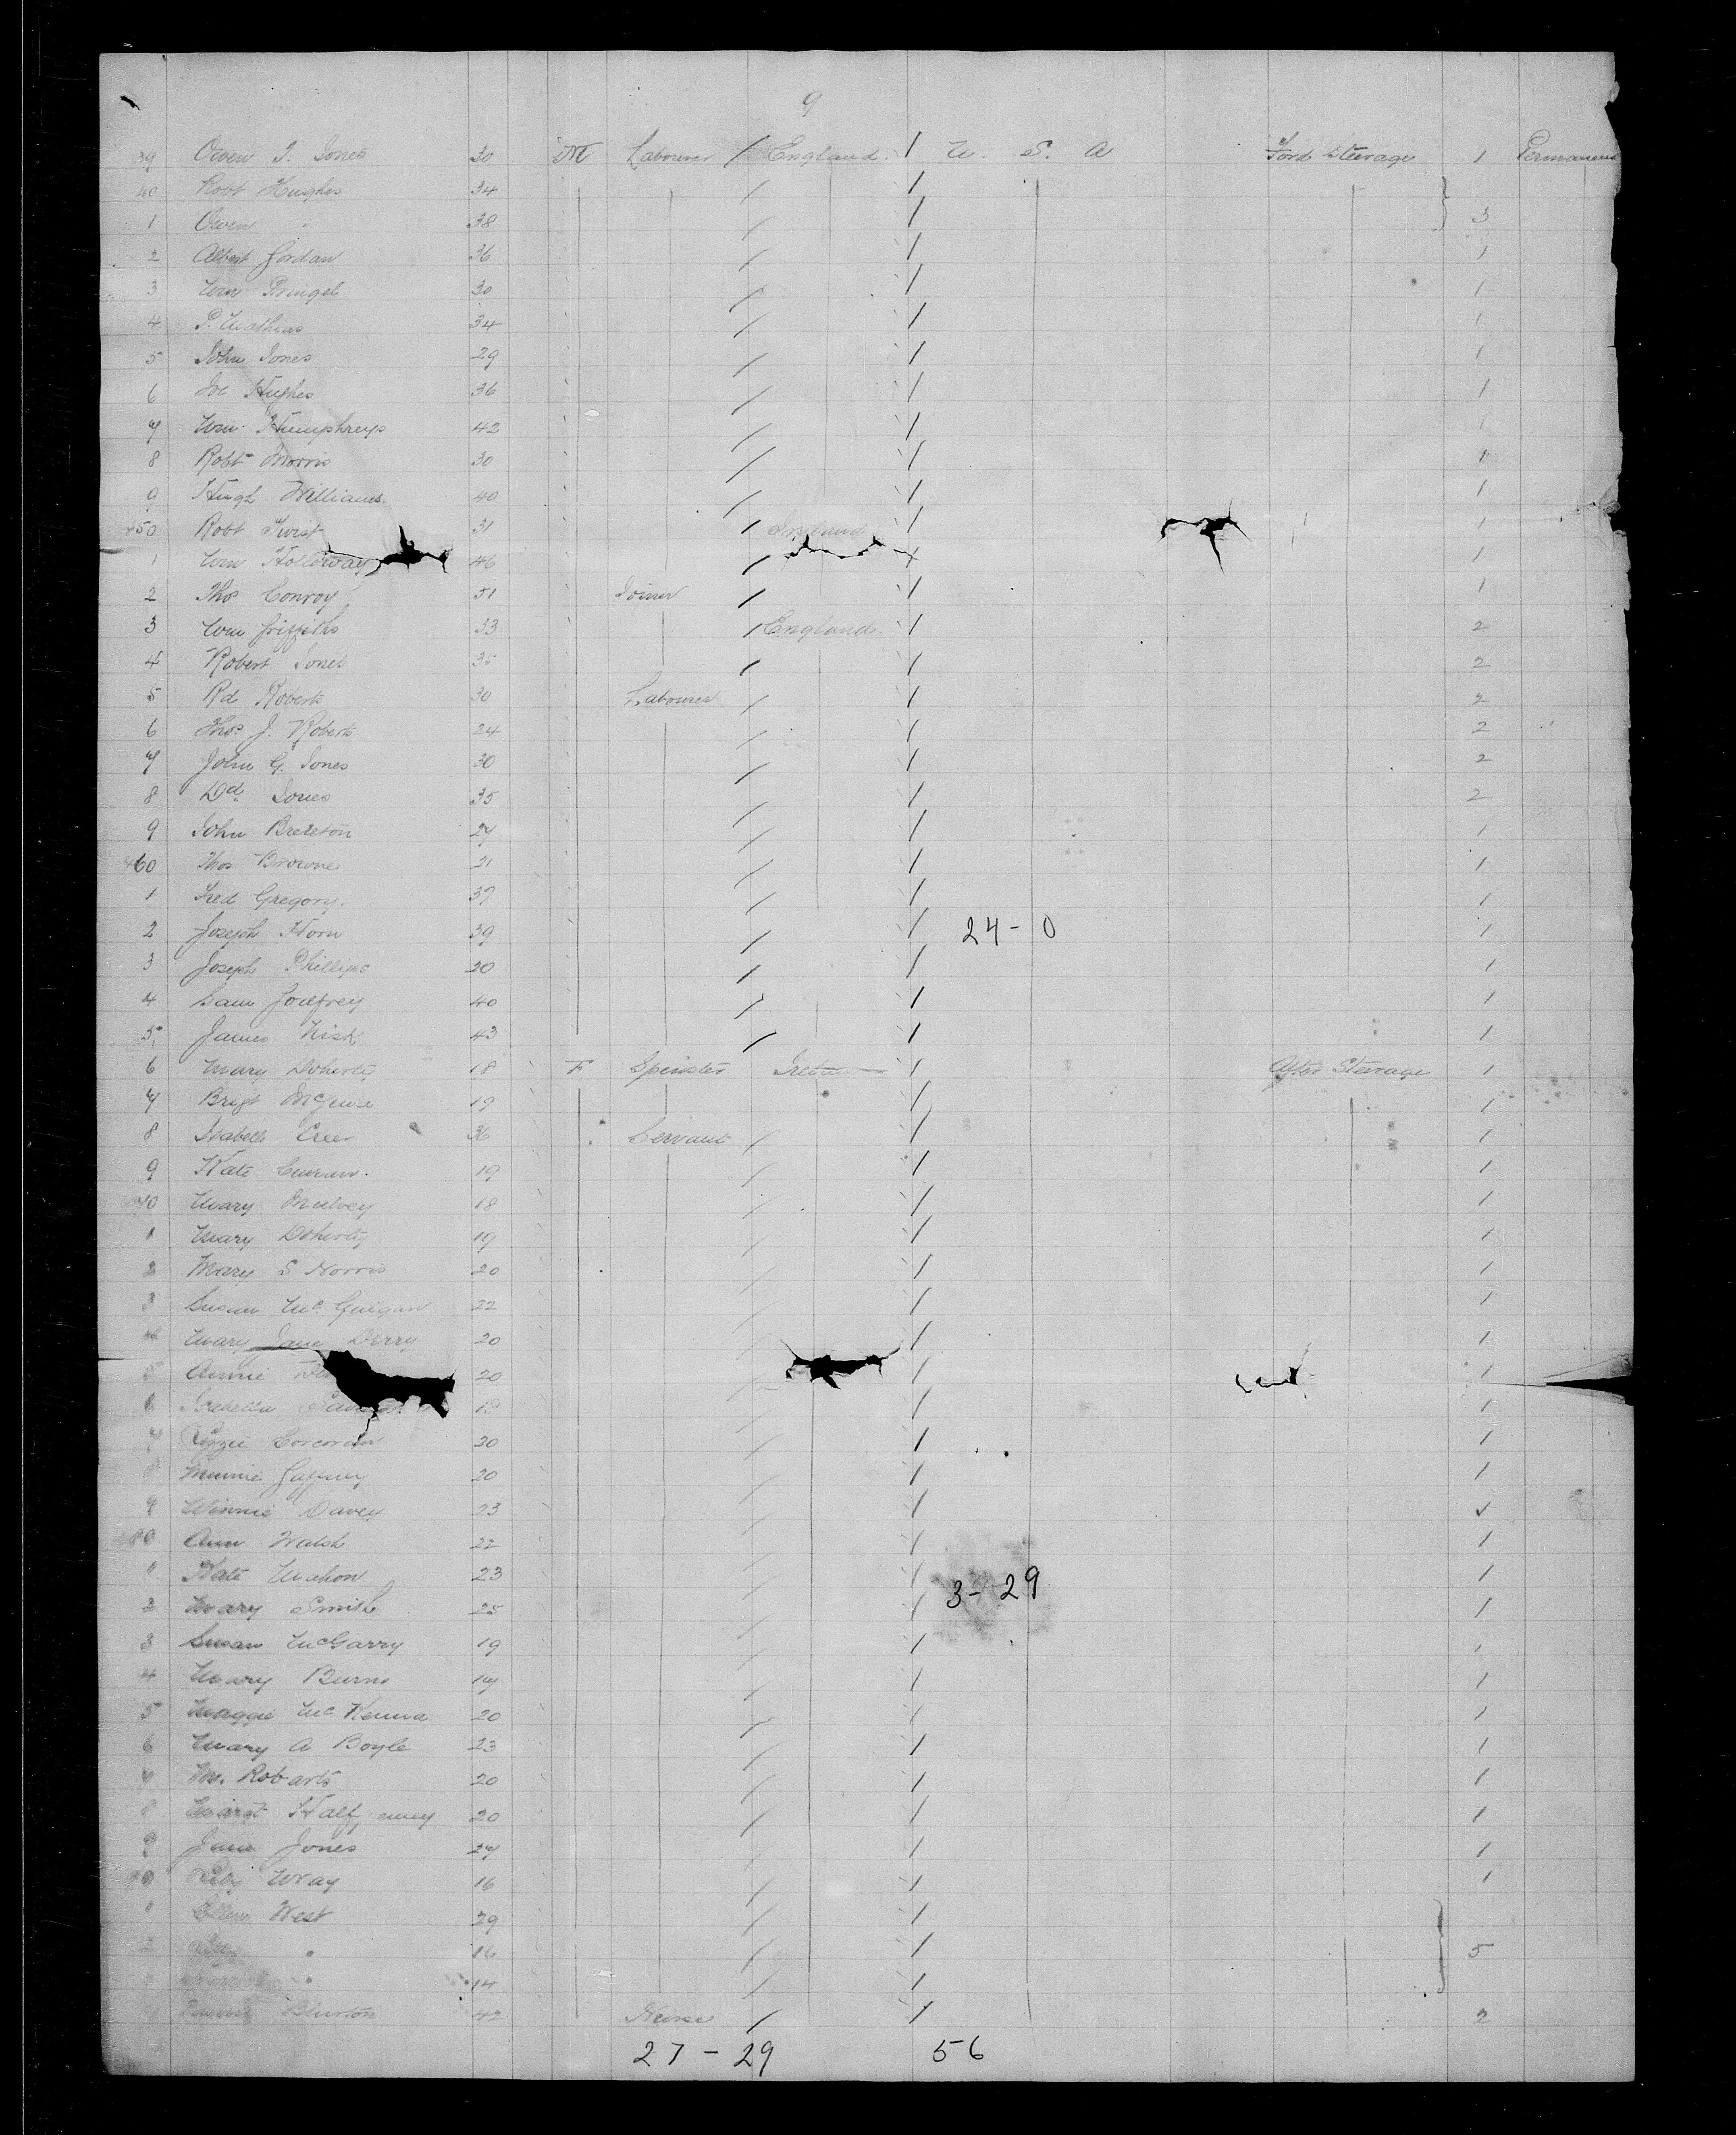 9
39 Owen T. Jones 30 M Labourer / England / U. S. A Ford Steerage 1 Permanent
40 Robt Hughes 34 / /
1 Owen " 38 / / 3
2 Albert Jordan 36 / / 1
3 Wm Pringel 30 / / 1
4 P. Mathias 34 / / 1
5 John Jones 29 / / 1
6 Hughes 36 / / 1
7 Wm Humphreys 42 / / 1
8 Robt Morris 30 / / 1
9 Hugh Williams 40 / / 1
450 Robt Twist 31 / / 1
1 Wm Holloway 46 / / 1
2 Thos Conroy 51 Joiner / / 1
3 Wm Griffiths 33 / England / 2
4 Robert Jones 35 / / 2
5 Rd Roberts 30 Labourer / / 2
6 Thos J. Roberts 24 / / 2
7 John G. Jones 30 / / 2
8 Dd Jones 35 / / 2
9 John Brereton 27 / / 1
460 Thos Browne 21 / / 1
1 Fred Gregory. 37 / / 1
2 Joseph Horn 39 / / 24-0 1
3 Joseph Phillips 30 / / 1
4 Sam Godfrey 40 / / 1
5 James Kisk 43 / / 1
6 Mary Doherty 18 F Spinster Ireland / After Steerage 1
7 Brigt McGuire 19 / 1
8 Isabella Creer 36 Servant / / 1
9 Kate Curran. 19 / / 1
70 Mary Mulvey 18 / / 1
1 Mary Doherty 19 / / 1
2 Mary S Norris 20 / / 1
3 Susan Mc Guigan 22 / / 1
4 Mary Jane Derry 20 / / 1
5 Annie 20 / / 1
6 Isabella / / 1
7 Lizzie Corcoran 30 / / 1
8 Minnie Gaffney 20 / / 1
9 Winnie Davey 23 / / 1
480 Ann Walsh 22 / / 1
1 Kate Mahon 23 / / 1
2 Mary Smith 25 / / 3-29 1
3 Susan McGarry 19 / / 1
4 Mary Burns 17 / / 1
5 Maggie Mc Kenna 20 / / 1
6 Mary A Boyle 23 / / 1
7 Robarts 20 / / 1
8 Margt Halfpenny 20 / / 1
9 Jane Jones 27 / / 1
90 Wray 16 / / 1
1 Ellen West 29 / /
2 " 16 / / 5
" 14 / /
Blurton 42 Nurse / / 2
27-29 56